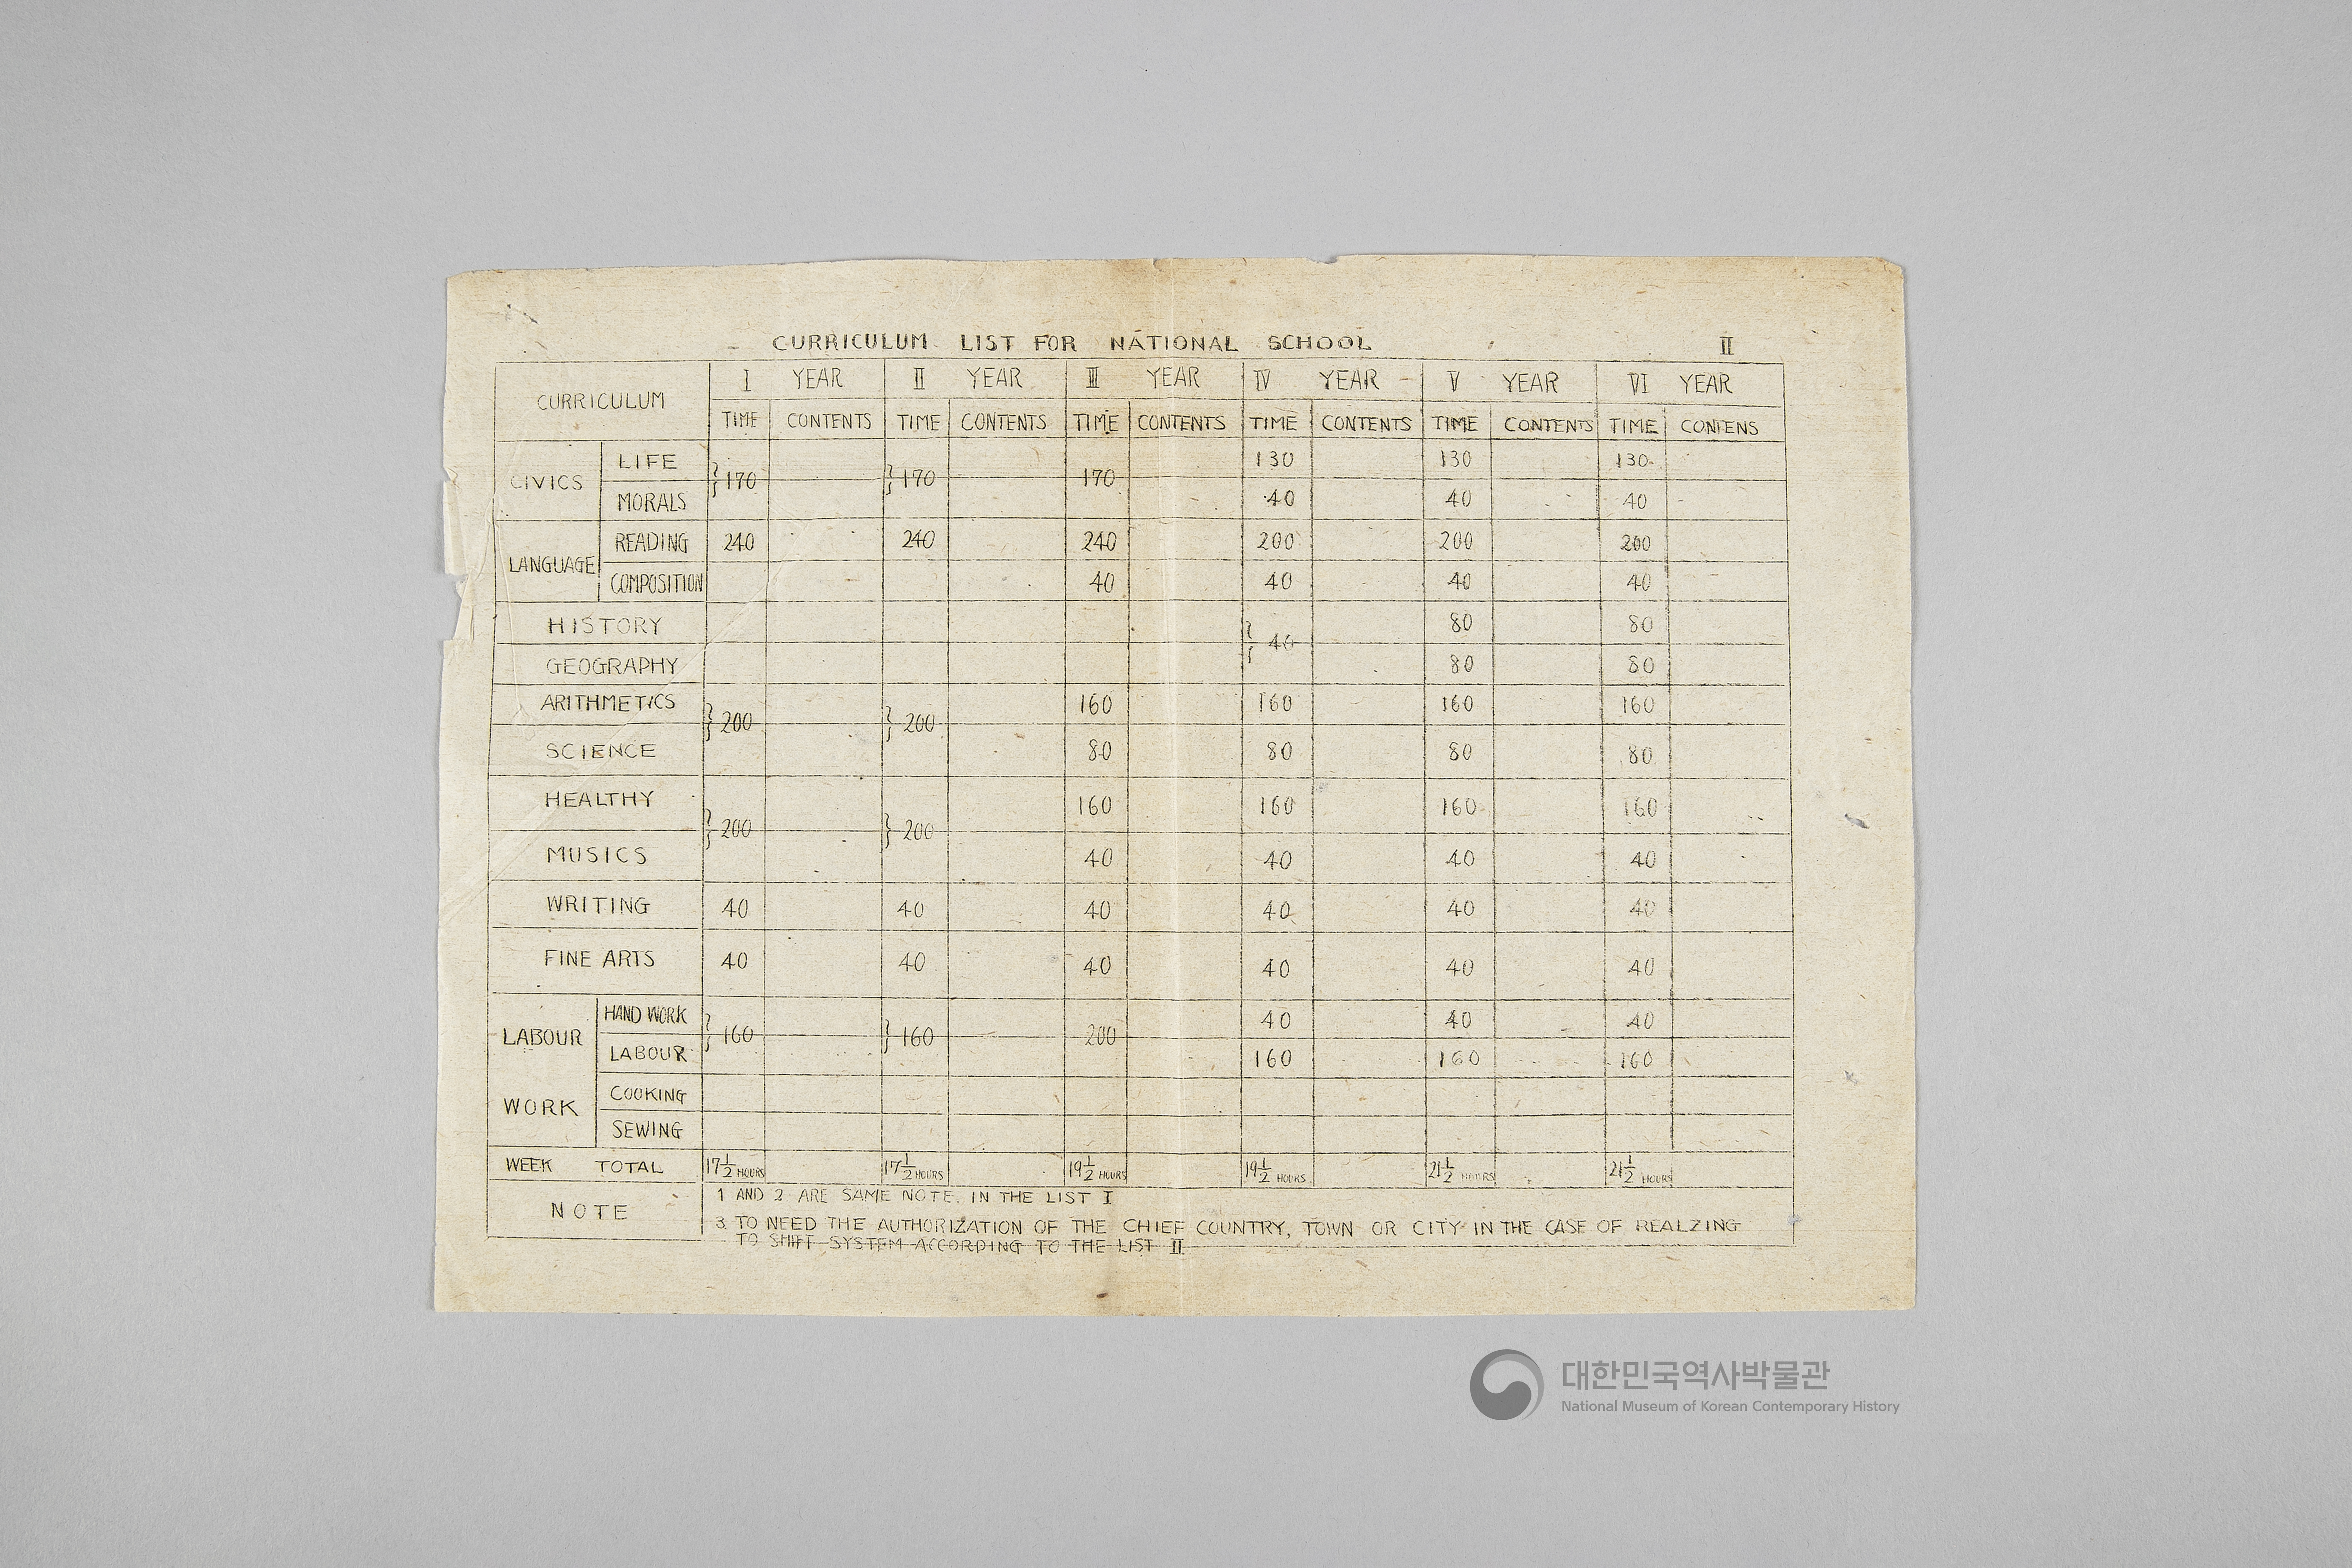 CURRICULUM LIST FOR NATIONAL SCHOOL II
CURRICULUM I YEAR II YEAR III YEAR IV YEAR V YEAR VI YEAR
TIME CONTENTS TIME CONTENTS TIME CONTENTS TIME CONTENTS TIME CONTENTS TIME CONTENS
CIVICS LIFE } 170 } 170 170 130 130 130
MORALS 40 40 40
LANGUAGE READING 240 240 240 200 200 200
COMPOSITION 40 40 40 40
HISTORY } 40 80 80
GEOGRAPHY 80 80
ARITHMETICS } 200 } 200 160 160 160 160
SCIENCE 80 80 80 80
HEALTHY } 200 } 200 160 160 160 160
MUSICS 40 40 40 40
WRITING 40 40 40 40 40 40
FINE ARTS 40 40 40 40 40 40
LABOUR WORK HAND WORK } 160 } 160 200 40 40 40
LABOUR 160 160 160
COOKING
SEWING
WEEK TOTAL 17 1/2 HOURS 17 1/2 HOURS 19 1/2 HOURS 19 1/2 HOURS 21 1/2 HOURS 21 1/2 HOURS
NOTE 1 AND 2 ARE SAME NOTE. IN THE LIST I
3 TO NEED THE AUTHORIZATION OF THE CHIEF COUNTRY, TOWN OR CITY IN THE CASE OF REALZING
TO SHIFT SYSTEM ACCORDING TO THE LIST II
대한민국역사박물관
National Museum of Korean Contemporary History